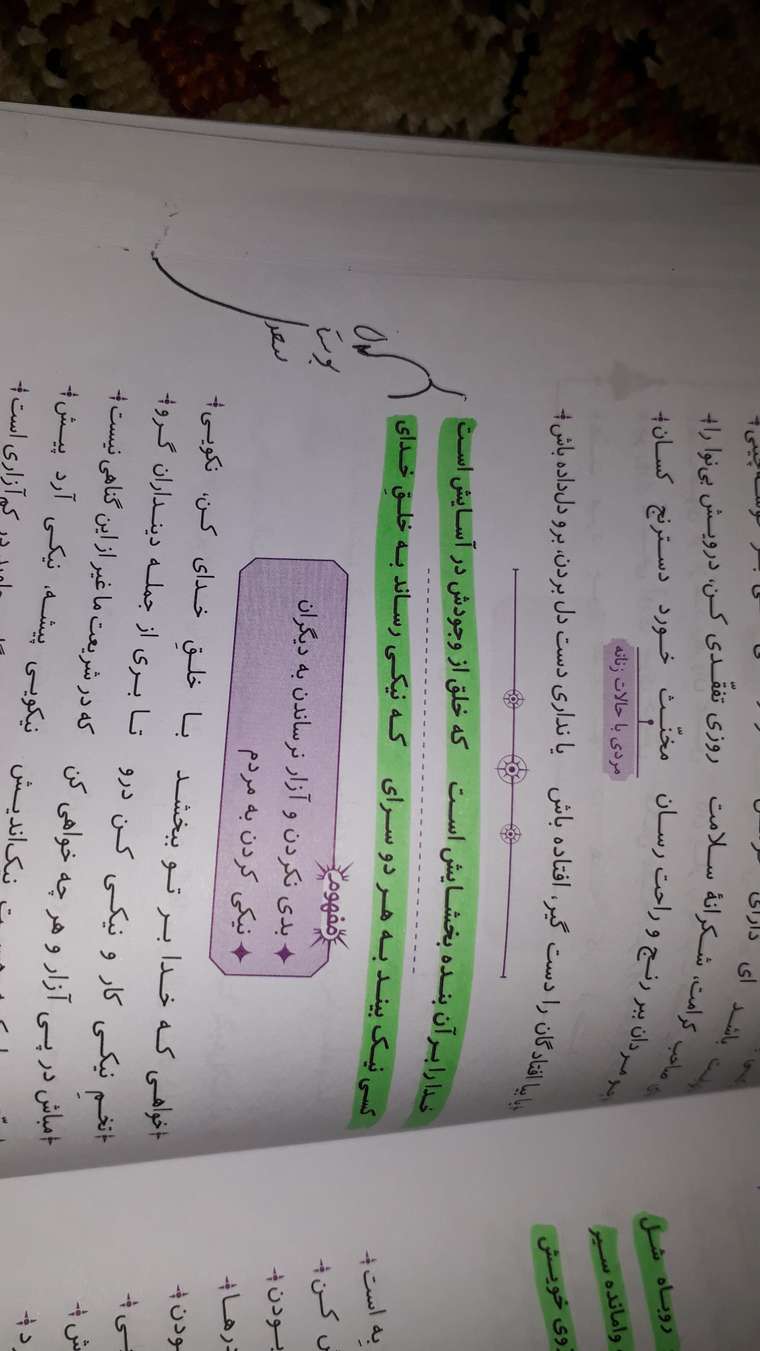 باشد ای دارای
کرامت، شکرانهٔ سلامت روزی تفقّدی کن، درویش بی‌نوا را
مردان ببر رنج و راحت رسان مخنّث خورد دسترنج کسان
مردی با حالات زنانه
افتادگان را دست گیر، افتاده باش یا نداری دست دل بردن، برو دل‌داده باش
خدا را بر آن بنده بخشایش است که خلق از وجودش در آسایش است
کسی نیک بیند به هر دو سرای که نیکی رساند به خلقِ خدای
بوستان
سعدی
مفهوم
بدی نکردن و آزار نرساندن به دیگران
نیکی کردن به مردم
خواهی که خدا بر تو ببخشد با خلقِ خدای کن، نکویی
تخمِ نیکی کار و نیکی کن درو تا بری از جمله دینداران گرو
مباش در پی آزار و هر چه خواهی کن که در شریعت ما غیر از این گناهی نیست
نیک‌اندیش نیکویی پیشه، نیکی آرد پیش
در کم آزاری است
روباه شل
وامانده سیر
خویش
به است
کن
بودن